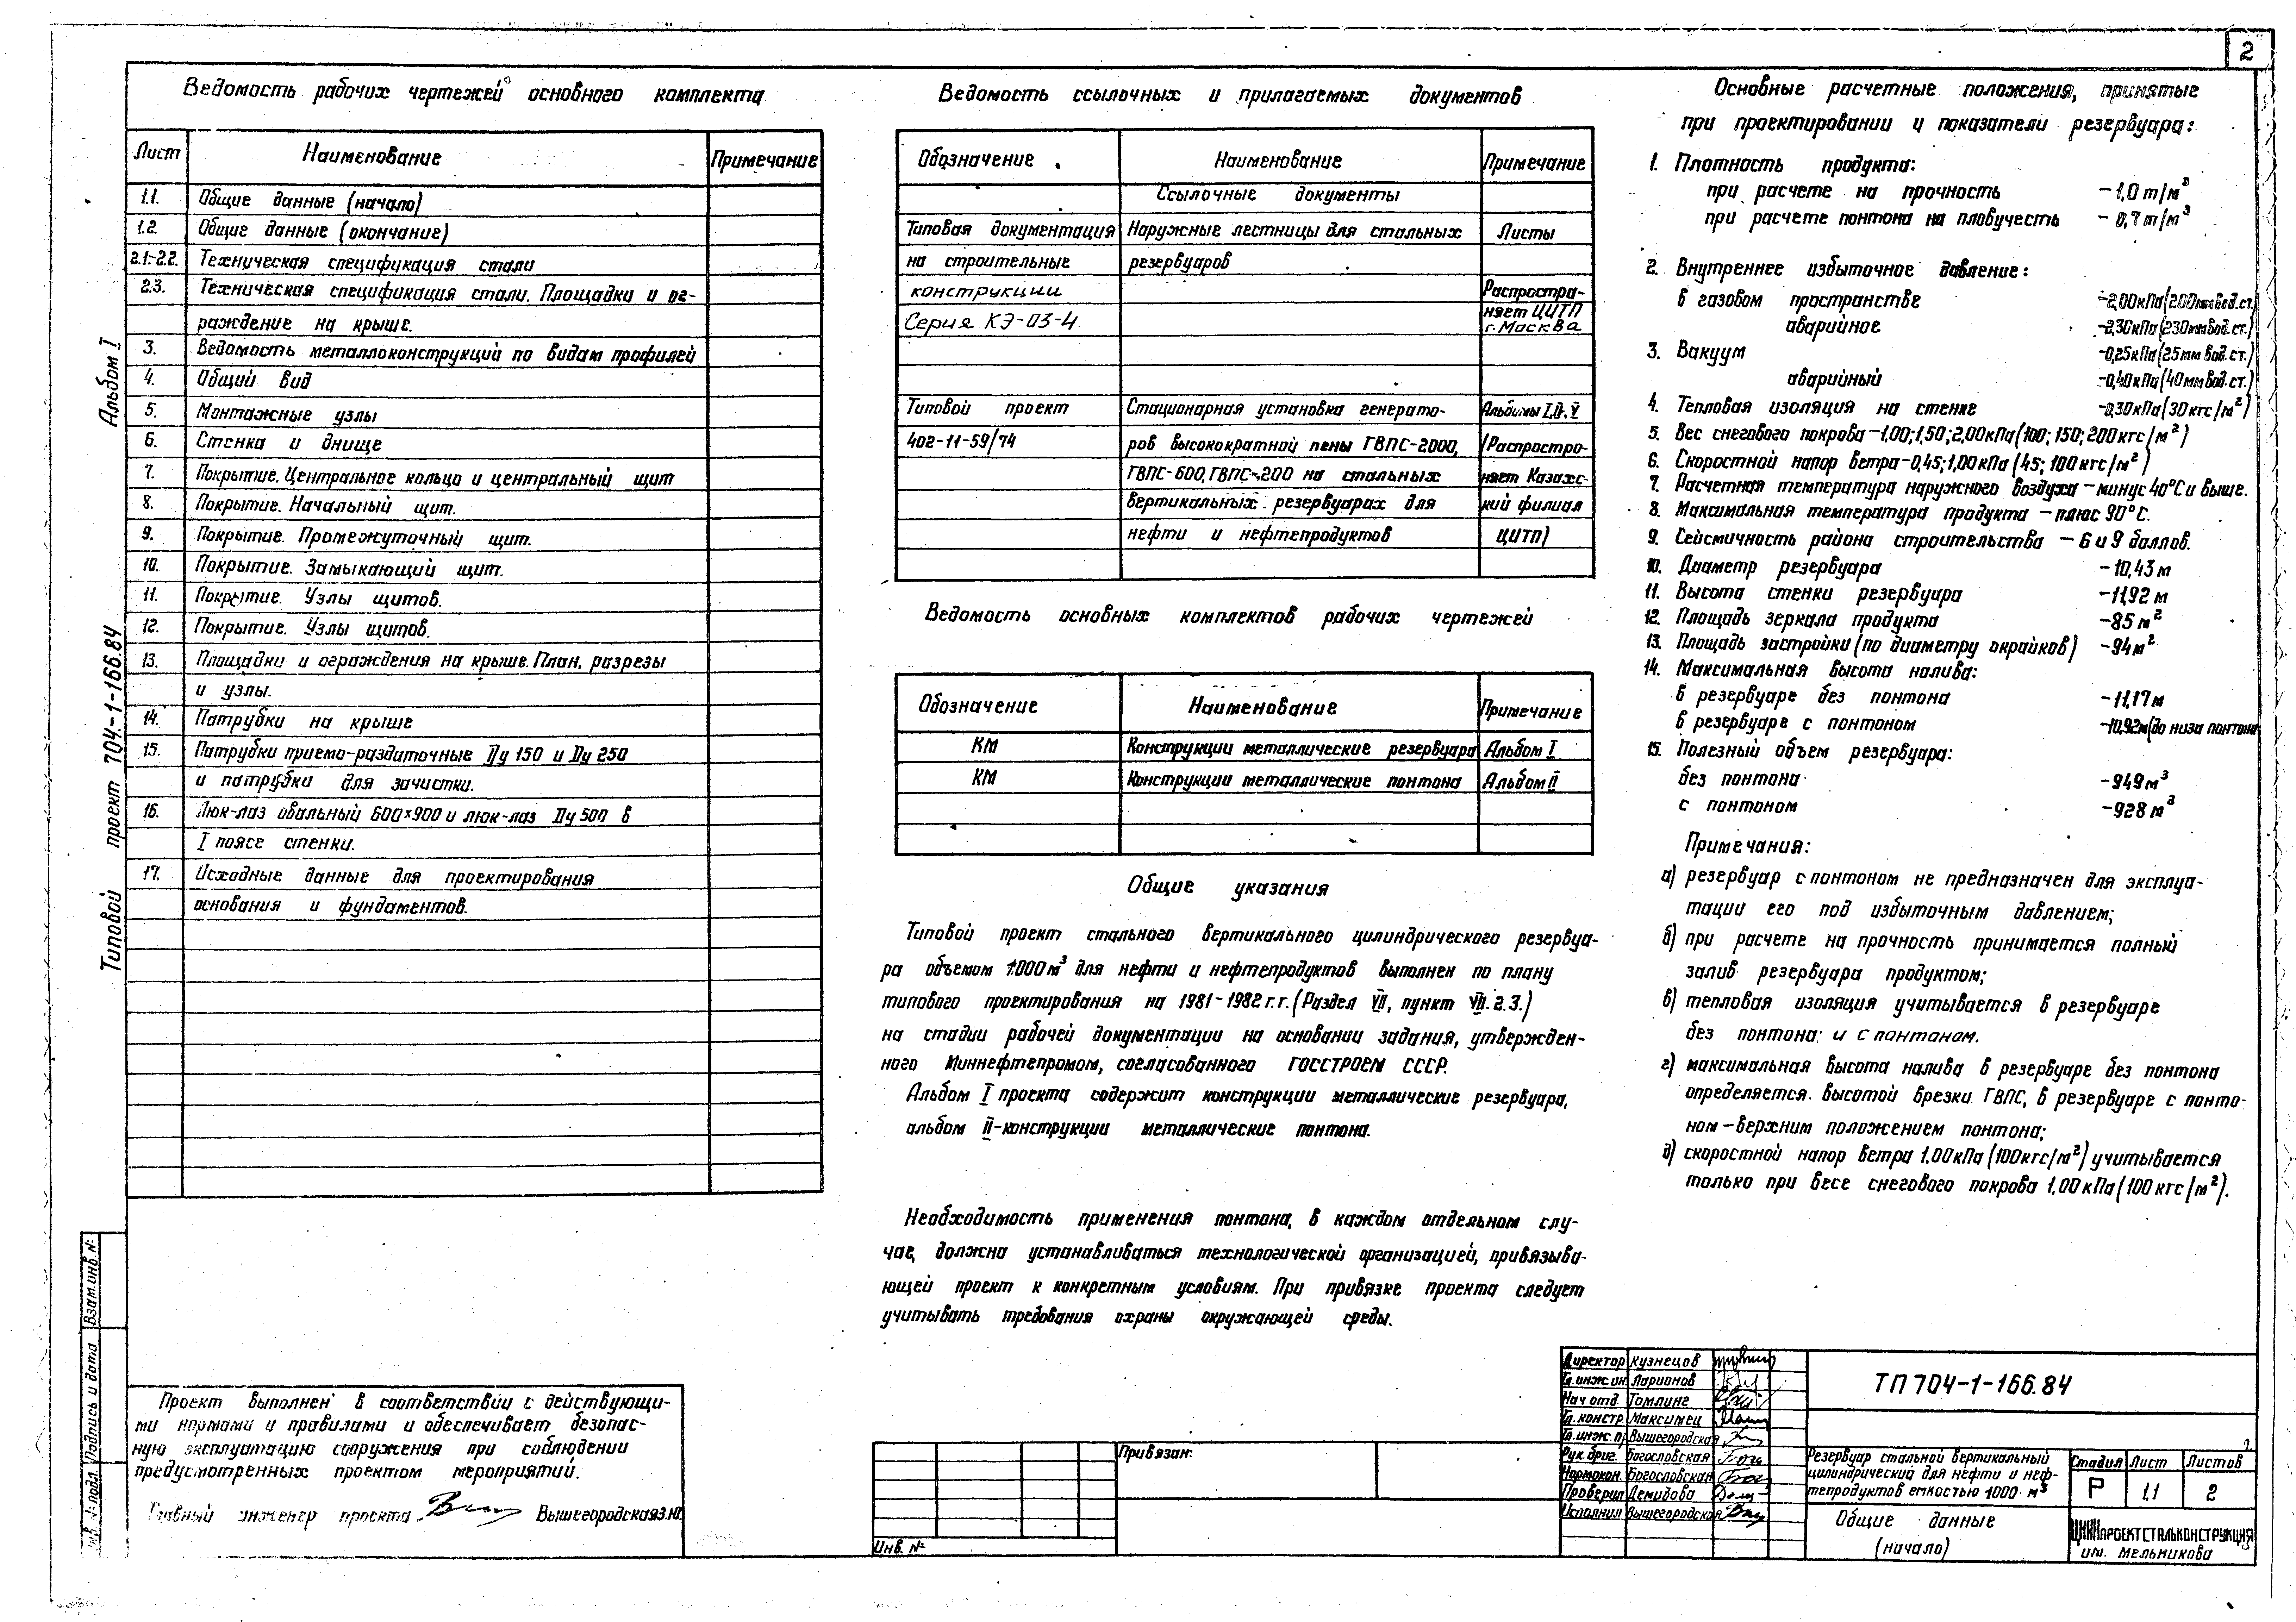 2
Ведомость рабочих чертежей основного комплекта
Лист Наименование Примечание
1.1. Общие данные (начало)
1.2. Общие данные (окончание)
2.1.-2.2. Техническая спецификация стали
2.3. Техническая спецификация стали. Площадки и ог-
раждение на крыше.
3. Ведомость металлоконструкций по видам профилей
4. Общий вид
5. Монтажные узлы
6. Стенка и днище
7. Покрытие. Центральное кольцо и центральный щит
8. Покрытие. Начальный щит.
9. Покрытие. Промежуточный щит.
10. Покрытие. Замыкающий щит.
11. Покрытие. Узлы щитов.
12. Покрытие. Узлы щитов.
13. Площадки и ограждения на крыше. План, разрезы
и узлы.
14. Патрубки на крыше
15. Патрубки приемо-раздаточные Ду 150 и Ду 250
и патрубки для зачистки.
16. Люк-лаз овальный 600×900 и люк-лаз Ду 500 в
I поясе стенки.
17. Исходные данные для проектирования
основания и фундаментов.
Типовой проект 704-1-166.84 Альбом I
Взам. инв. №
Подпись и дата
Инв. № подл.
Проект выполнен в соответствии с действующи-
ми нормами и правилами и обеспечивает безопас-
ную эксплуатацию сооружения при соблюдении
предусмотренных проектом мероприятий.
Главный инженер проекта Вышегородская З.Ю.
Ведомость ссылочных и прилагаемых документов
Обозначение Наименование Примечание
Ссылочные документы
Типовая документация Наружные лестницы для стальных Листы
на строительные резервуаров
конструкции Распростра-
Серия КЭ-03-4 няет ЦИТП
г. Москва
Типовой проект Стационарная установка генерато- Альбомы I, II, V
402-11-59/74 ров высокократной пены ГВПС-2000, (Распростро-
ГВПС-600, ГВПС-200 на стальных няет Казахс-
вертикальных резервуарах для кий филиал
нефти и нефтепродуктов ЦИТП)
Ведомость основных комплектов рабочих чертежей
Обозначение Наименование Примечание
КМ Конструкции металлические резервуара Альбом I
КМ Конструкции металлические понтона Альбом II
Общие указания
Типовой проект стального вертикального цилиндрического резервуа-
ра объемом 1000 м³ для нефти и нефтепродуктов выполнен по плану
типового проектирования на 1981-1982 г.г. (Раздел VII, пункт VII. 2.3.)
на стадии рабочей документации на основании задания, утвержден-
ного Миннефтепромом, согласованного ГОССТРОЕМ СССР.
Альбом I проекта содержит конструкции металлические резервуара,
альбом II-конструкции металлические понтона.
Необходимость применения понтона, в каждом отдельном слу-
чае, должна устанавливаться технологической организацией, привязыва-
ющей проект к конкретным условиям. При привязке проекта следует
учитывать требования охраны окружающей среды.
Основные расчетные положения, принятые
при проектировании и показатели резервуара:
1. Плотность продукта:
при расчете на прочность -1,0 т/м³
при расчете понтона на плавучесть - 0,7 т/м³
2. Внутреннее избыточное давление:
в газовом пространстве -2,00кПа (200мм вод.ст.)
аварийное -2,30кПа (230мм вод.ст.)
3. Вакуум -0,25кПа (25мм вод.ст.)
аварийный -0,40кПа (40мм вод.ст.)
4. Тепловая изоляция на стенке -0,30кПа (30 кгс/м²)
5. Вес снегового покрова -1,00; 1,50; 2,00кПа (100; 150; 200кгс/м²)
6. Скоростной напор ветра-0,45; 1,00кПа (45; 100 кгс/м²)
7. Расчетная температура наружного воздуха - минус 40°С и выше.
8. Максимальная температура продукта - плюс 90°С.
9. Сейсмичность района строительства - 6 и 9 баллов.
10. Диаметр резервуара -10,43 м
11. Высота стенки резервуара -11,92 м
12. Площадь зеркала продукта -85 м²
13. Площадь застройки (по диаметру окрайков) -94 м²
14. Максимальная высота налива:
в резервуаре без понтона -11,17 м
в резервуаре с понтоном -10,92м (до низа понтона
15. Полезный объем резервуара:
без понтона -949 м³
с понтоном -928 м³
Примечания:
а) резервуар с понтоном не предназначен для эксплуа-
тации его под избыточным давлением;
б) при расчете на прочность принимается полный
залив резервуара продуктом;
в) тепловая изоляция учитывается в резервуаре
без понтона и с понтоном.
г) максимальная высота налива в резервуаре без понтона
определяется высотой врезки ГВПС, в резервуаре с понто-
ном - верхним положением понтона;
д) скоростной напор ветра 1,00 кПа (100 кгс/м²) учитывается
только при весе снегового покрова 1,00 кПа (100 кгс/м²).
Привязан:
Инв. №
Директор Кузнецов
Гл. инж. ин Ларионов
Нач. отд. Томлинг
Гл. констр. Максимец
Гл. инж. пр Вышегородская
Рук. бриг. Богословская
Нормокон. Богословская
Проверил Демидова
Исполнил Вышегородская
ТП 704-1-166.84
Резервуар стальной вертикальный
цилиндрический для нефти и неф-
тепродуктов емкостью 1000 м³
Стадия Лист Листов
Р 1.1 2
Общие данные
(начало)
ЦНИИПРОЕКТСТАЛЬКОНСТРУКЦИЯ
им. Мельникова